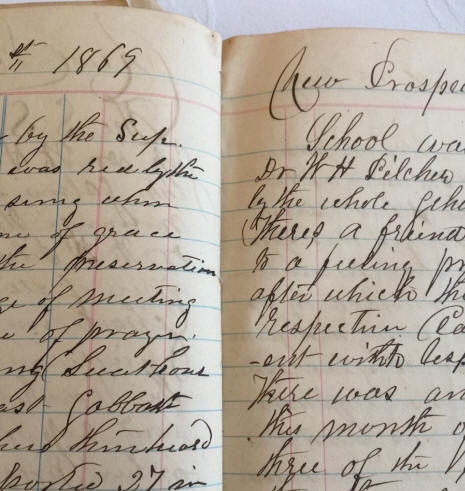 th 1869
by the Sup.
was red by the
sung when
of grace
the preservation
of meeting
of prayer.
last Sabbath
27 in
New Prospec
School was
Dr. W H Pilcher
by the whole Scho
(Theres a friend
to a feeling pr
after which the
respective Cla
-ent with les
There was an
this month o
three of the